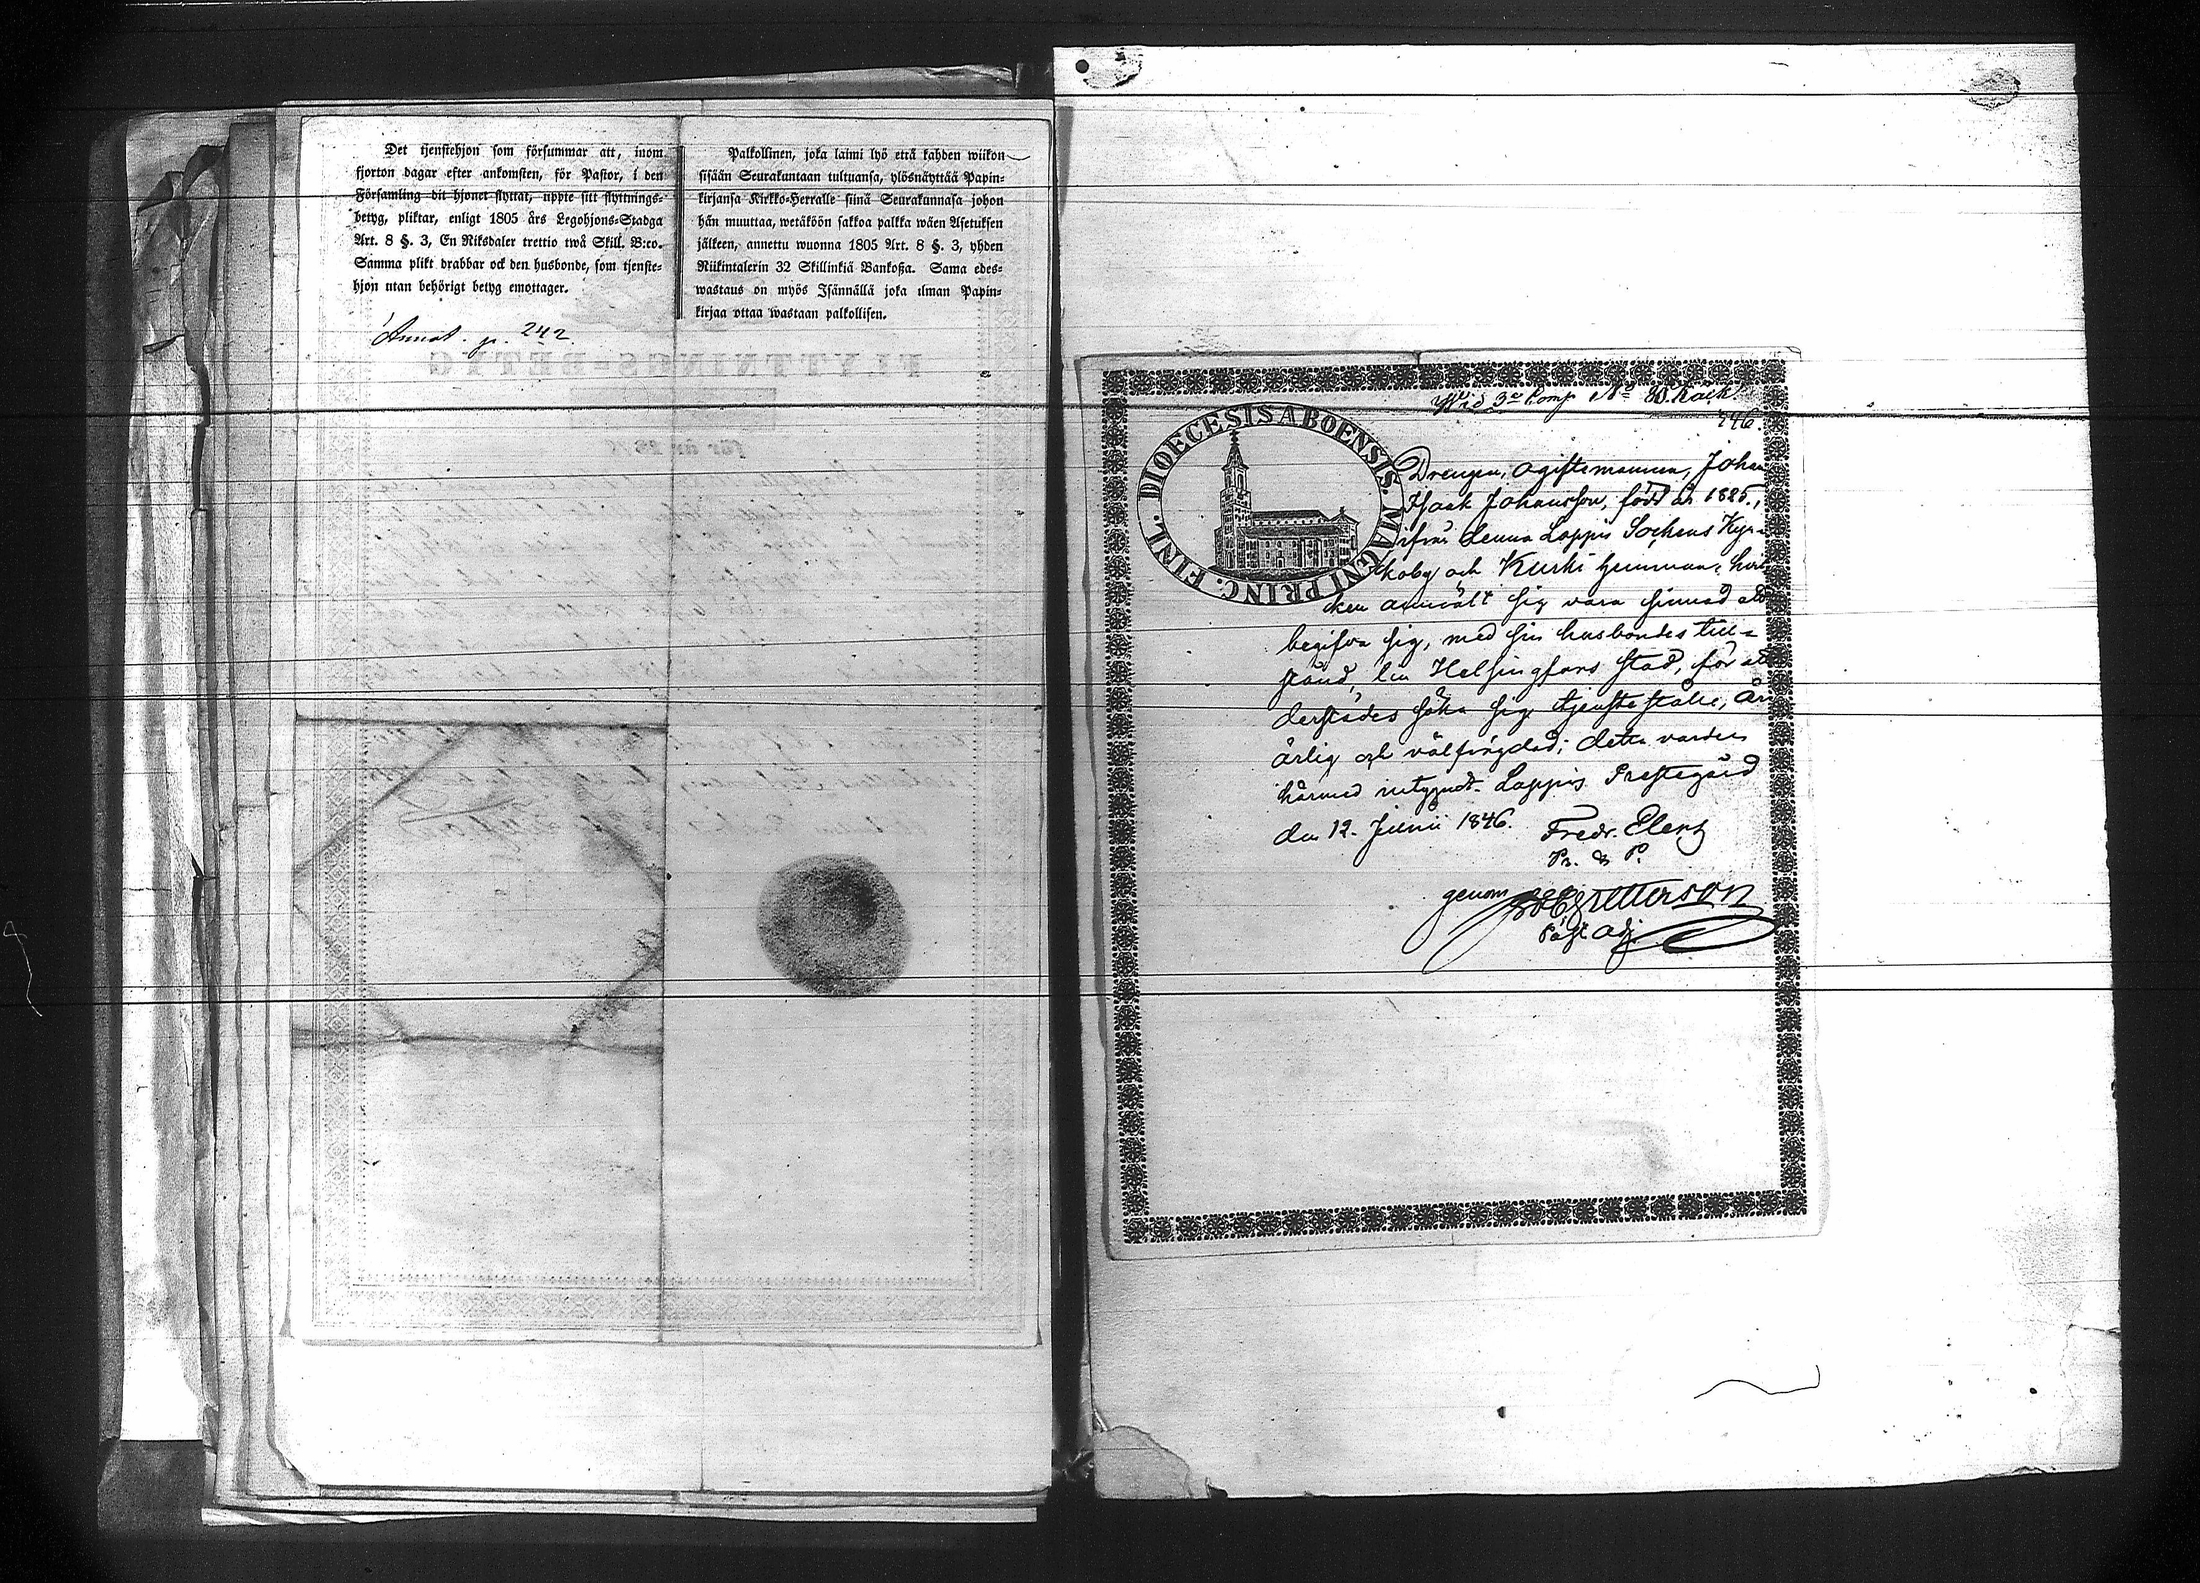 Det tjenstehjon som försummar att, inom
fjorton dagar efter ankomsten, för Pastor, i den
Församling dit hjonet flyttat, uppte sitt flyttnings-
betyg, pliktar, enligt 1805 års Legohjons-Stadga
Art. 8 §. 3, En Riksdaler trettio twå Skill. B:co.
Samma plikt drabbar ock den husbonde, som tjenste-
hjon utan behörigt betyg emottager.
Palkollinen, joka laimi lyö että kahden wiikon
sisään Seurakuntaan tultuansa, ylösnäyttää Papin-
kirjansa Kirkko-Herralle siinä Seurakunnasa johon
hän muuttaa, wetäköön sakkoa palkka wäen Asetuksen
jälkeen, annettu wuonna 1805 Art. 8 §. 3, yhden
Riikintalerin 32 Skillinkiä Bankoßa. Sama edes-
wastaus on myös Isännällä joka ilman Papin-
kirjaa ottaa wastaan palkollisen.
Annot. p. 242
FLYTTNINGS-BETYG
för år 18
Wid 3e Comp No
246.
DIOECESIS ABOENSIS. MAGNI PRINC. FINL.
Drengen, ogifte mannen, Johan
Isaak Johansson, född år 1825,
ifrån denna Loppis Sockens Kyr-
koby och Kurki hemman, hvil
ken anmält sig vara sinnad att
begifva sig, med sin husbondes till-
stånd, till Helsingfors stad, för att
derstädes söka sig tjenste ställe, är
ärlig och välfrägdad; detta varder
härmed intygadt. Loppis Prestegård
den 12. Junii 1846. Fredr. Elers
Pr. & P.
genom Petterson
Past Adj.